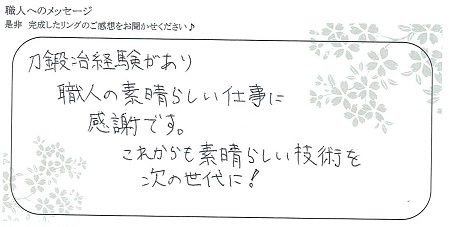 職人へのメッセージ
是非 完成したリングのご感想をお聞かせください♪
刀鍛冶経験があり
職人の素晴らしい仕事に
感謝です。
これからも素晴らしい技術を
次の世代に!